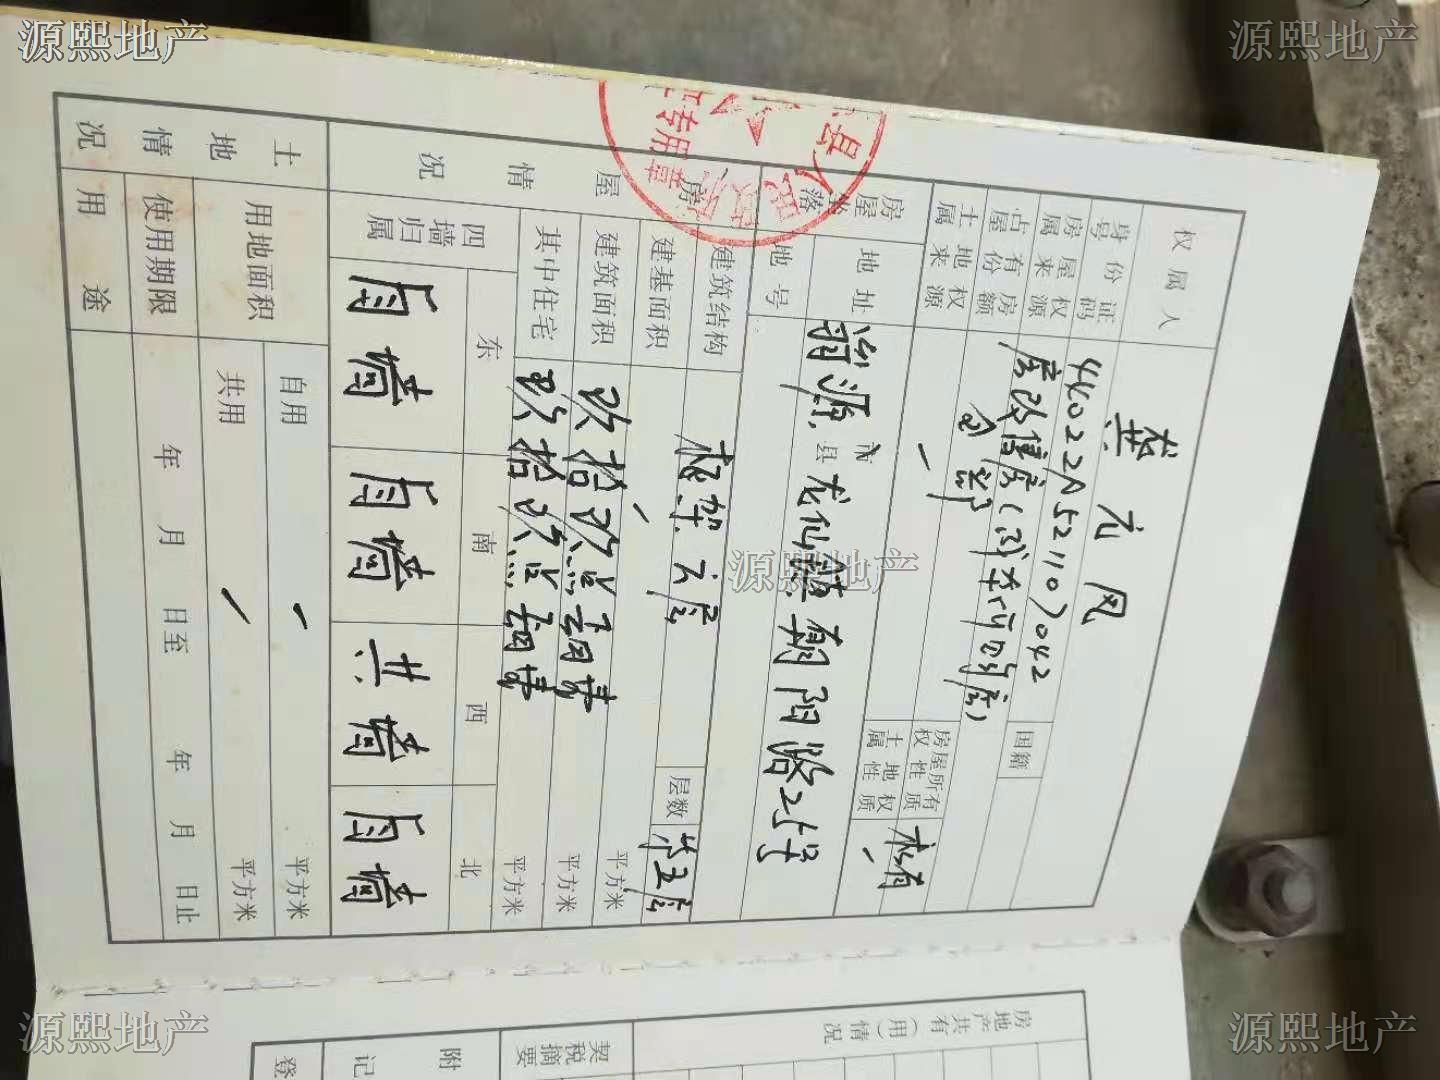 源熙地产
源熙地产
权属人 龚元风
身份证号码
国籍
房屋权属来源 房改售房
占有房屋份额 全部
房屋所有权性质 私有
土地权属来源
土地权属性质
房屋坐落
地址 翁源 市县 龙仙镇朝阳路
地号
房屋情况
建筑结构 框架六层
层数 第五层
建基面积 平方米
建筑面积 玖拾玖点 平方米
其中住宅 玖拾玖点 平方米
四墙归属
东 南 西 北
自墙 自墙 共墙 自墙
土地情况
用地面积
自用 平方米
共用 平方米
使用期限 年 月 日至 年 月 日止
用途
专用章
源熙地产
房地产共有(用)情况
契税摘要
附记
登
源熙地产
源熙地产